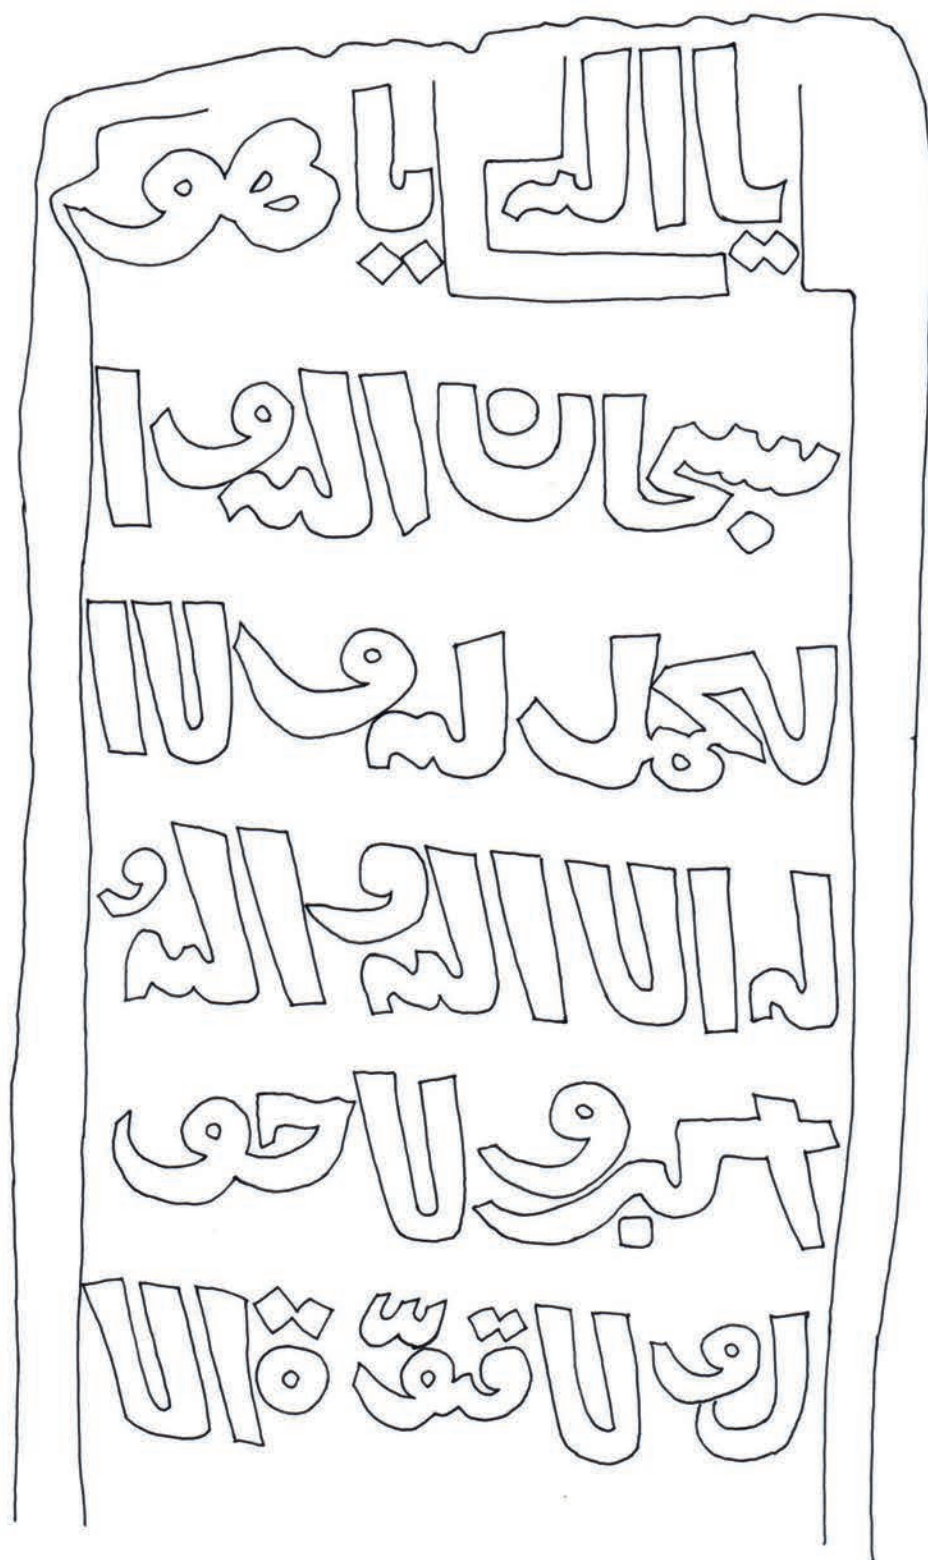 يا الله يا هو
سبحان الله و ا
لحمد لله و لا ا
له الا الله و اللهُ
اكبر و لا حو
ل و لا قوّة الا